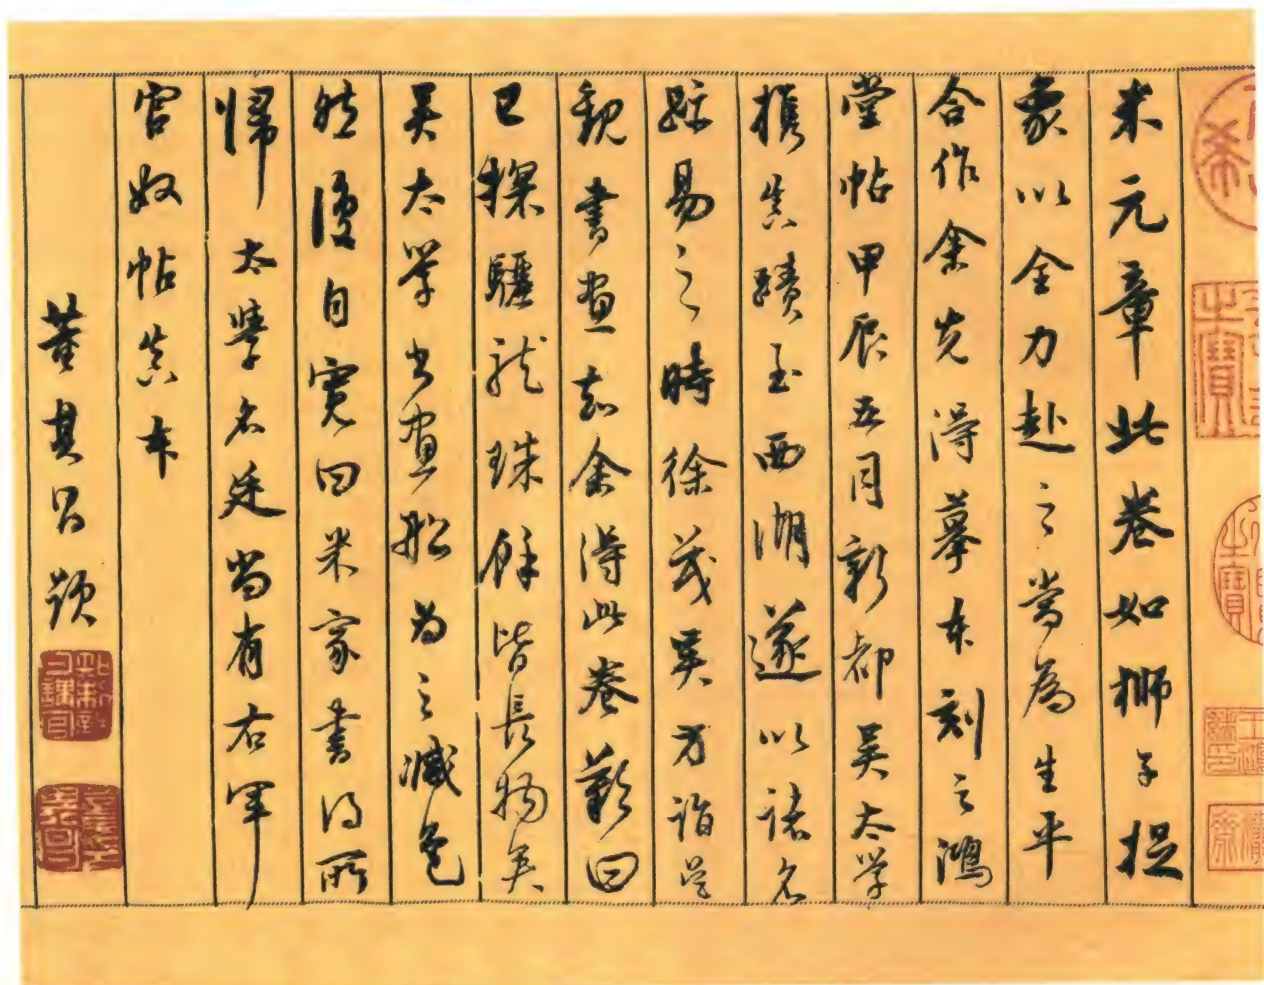 米元章此卷如獅子捉
象以全力赴之當為生平
合作余先得摹本刻之鴻
堂帖甲辰五月新都吳太學
携真蹟至西湖遂以諸名
跡易之時徐茂吳方詣吳
觀書畫知余得此卷歎曰
已探驪龍珠餘皆長物矣
吳太學書畫船為之減色
然後自寬曰米家書得所
歸太學名廷尚有右軍
官奴帖真本
董其昌題